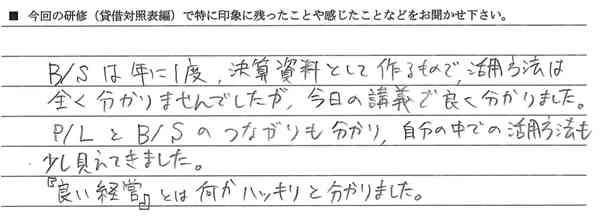 ■ 今回の研修（貸借対照表編）で特に印象に残ったことや感じたことなどをお聞かせ下さい。
B/Sは年に1度、決算資料として作るもので、活用方法は
全く分かりませんでしたが、今日の講義で良く分かりました。
P/LとB/Sのつながりも分かり、自分の中での活用方法も
少し見えてきました。
『良い経営』とは何かハッキリと分かりました。